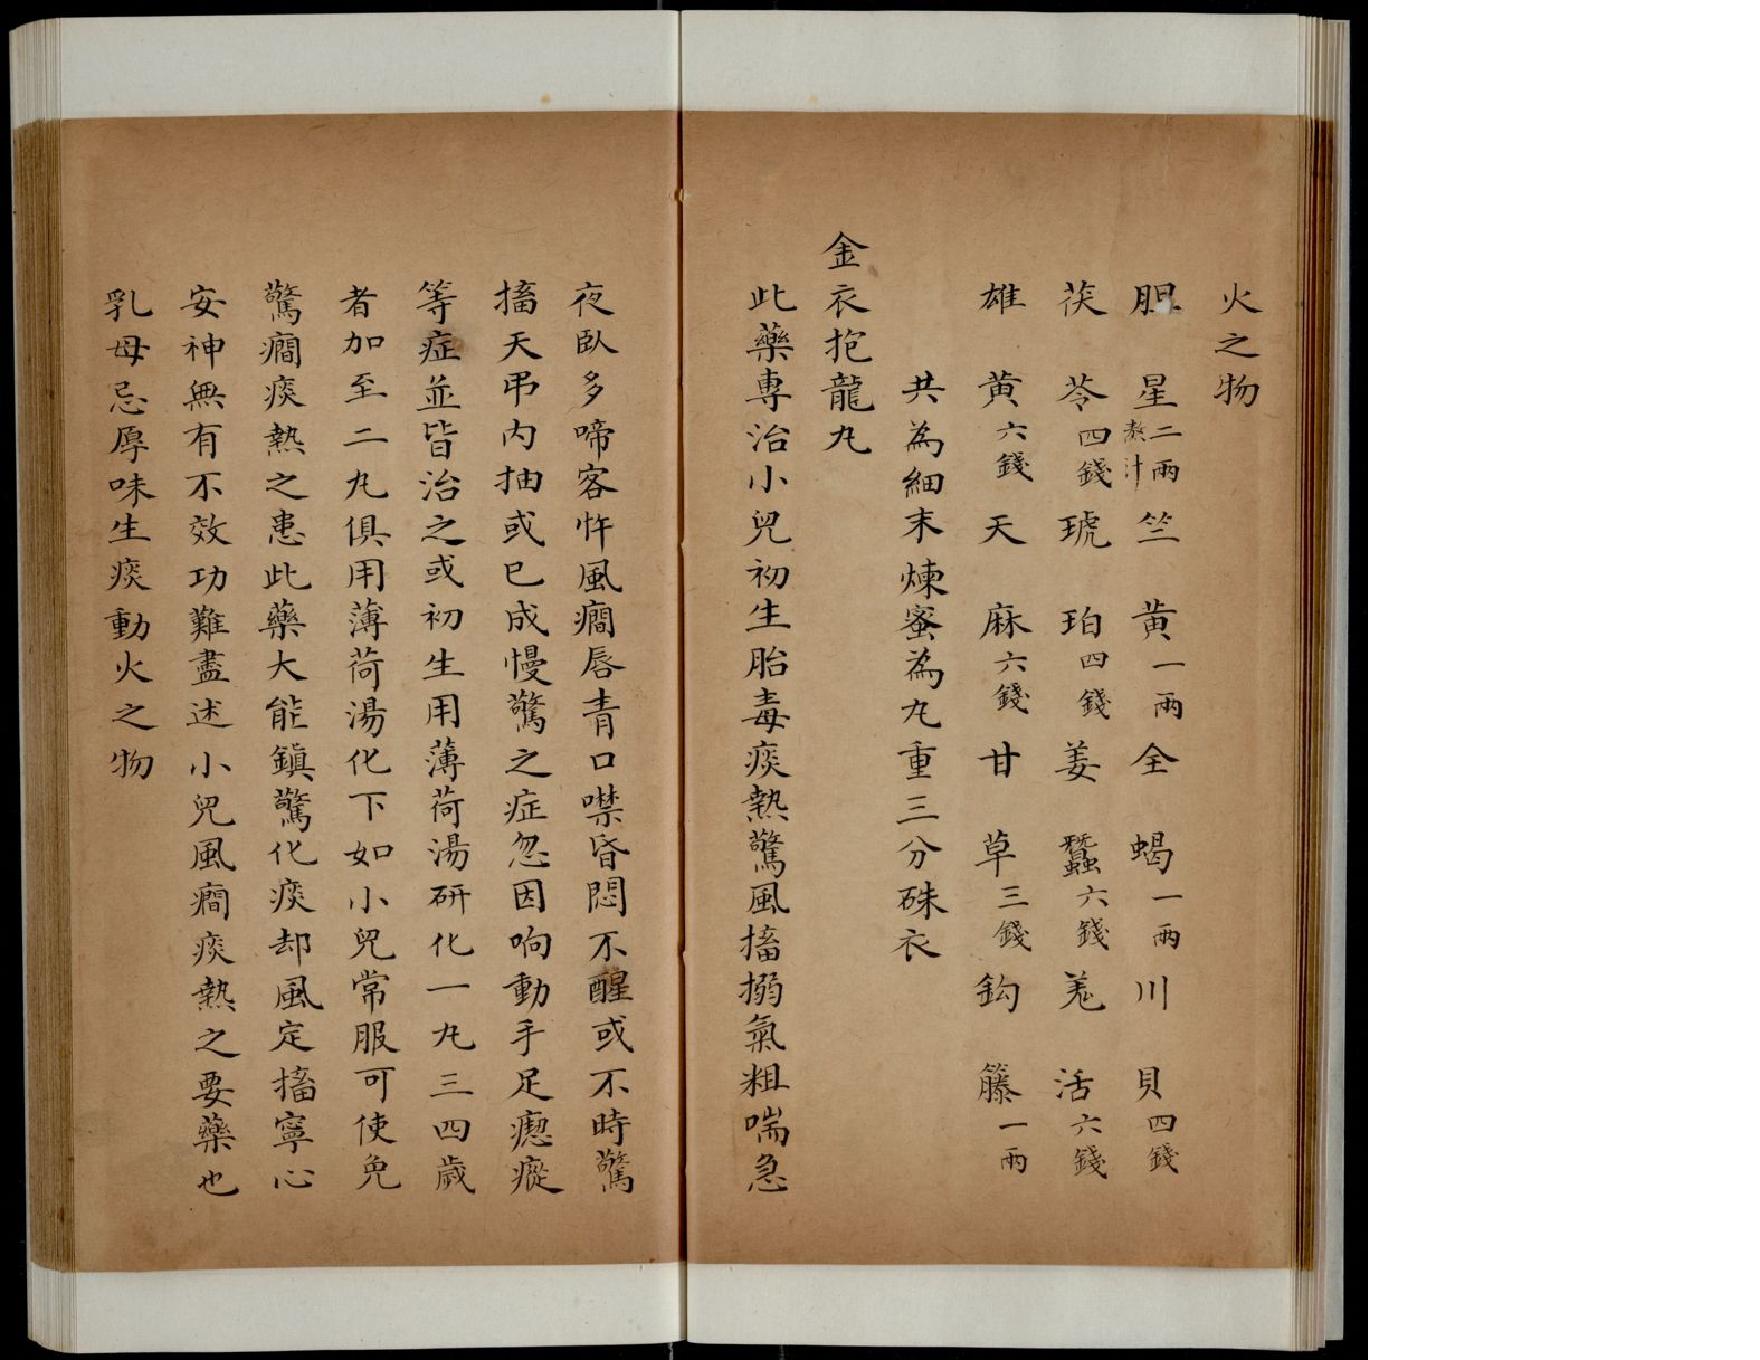 火之物
胆星二兩熬汁竺黃一兩全蝎一兩川貝四錢
茯苓四錢琥珀四錢姜蠶六錢羌活六錢
雄黃六錢天麻六錢甘草三錢鈎籐一兩
共為細末煉蜜為丸重三分硃衣
金衣抱龍丸
此藥專治小兒初生胎毒痰熱驚風搐搦氣粗喘急
夜臥多啼客忤風癎唇青口噤昏悶不醒或不時驚
搐天弔內抽或已成慢驚之症忽因响動手足瘛瘲
等症並皆治之或初生用薄荷湯研化一丸三四歲
者加至二丸俱用薄荷湯化下如小兒常服可使免
驚癎痰熱之患此藥大能鎮驚化痰却風定搐寧心
安神無有不效功難盡述小兒風癎痰熱之要藥也
乳母忌厚味生痰動火之物